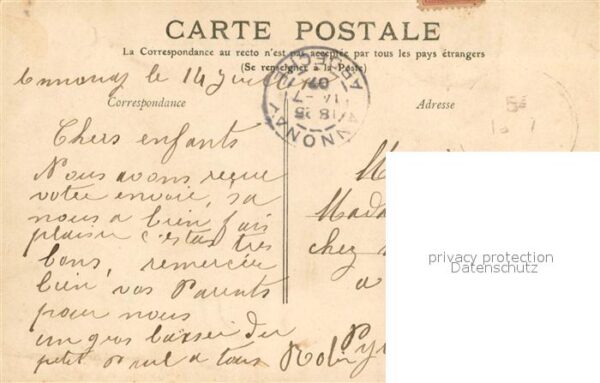 CARTE POSTALE
La Correspondance au recto n'est pas acceptée par tous les pays étrangers
(Se renseigner à la Poste)
Annonay le 14 juillet
Correspondance
Adresse
ANNONAY
ARDECHE
18 25
14 -7
07
Chers enfants
Nous avons reçue
votre envoie, sa
nous a bien fais
plaisir c'etait tres
bons, remercier
bien vos Parents
pour nous
un gros baiser du
petit Paul a tous
Mada
chez
a
Py
privacy protection
Datenschutz